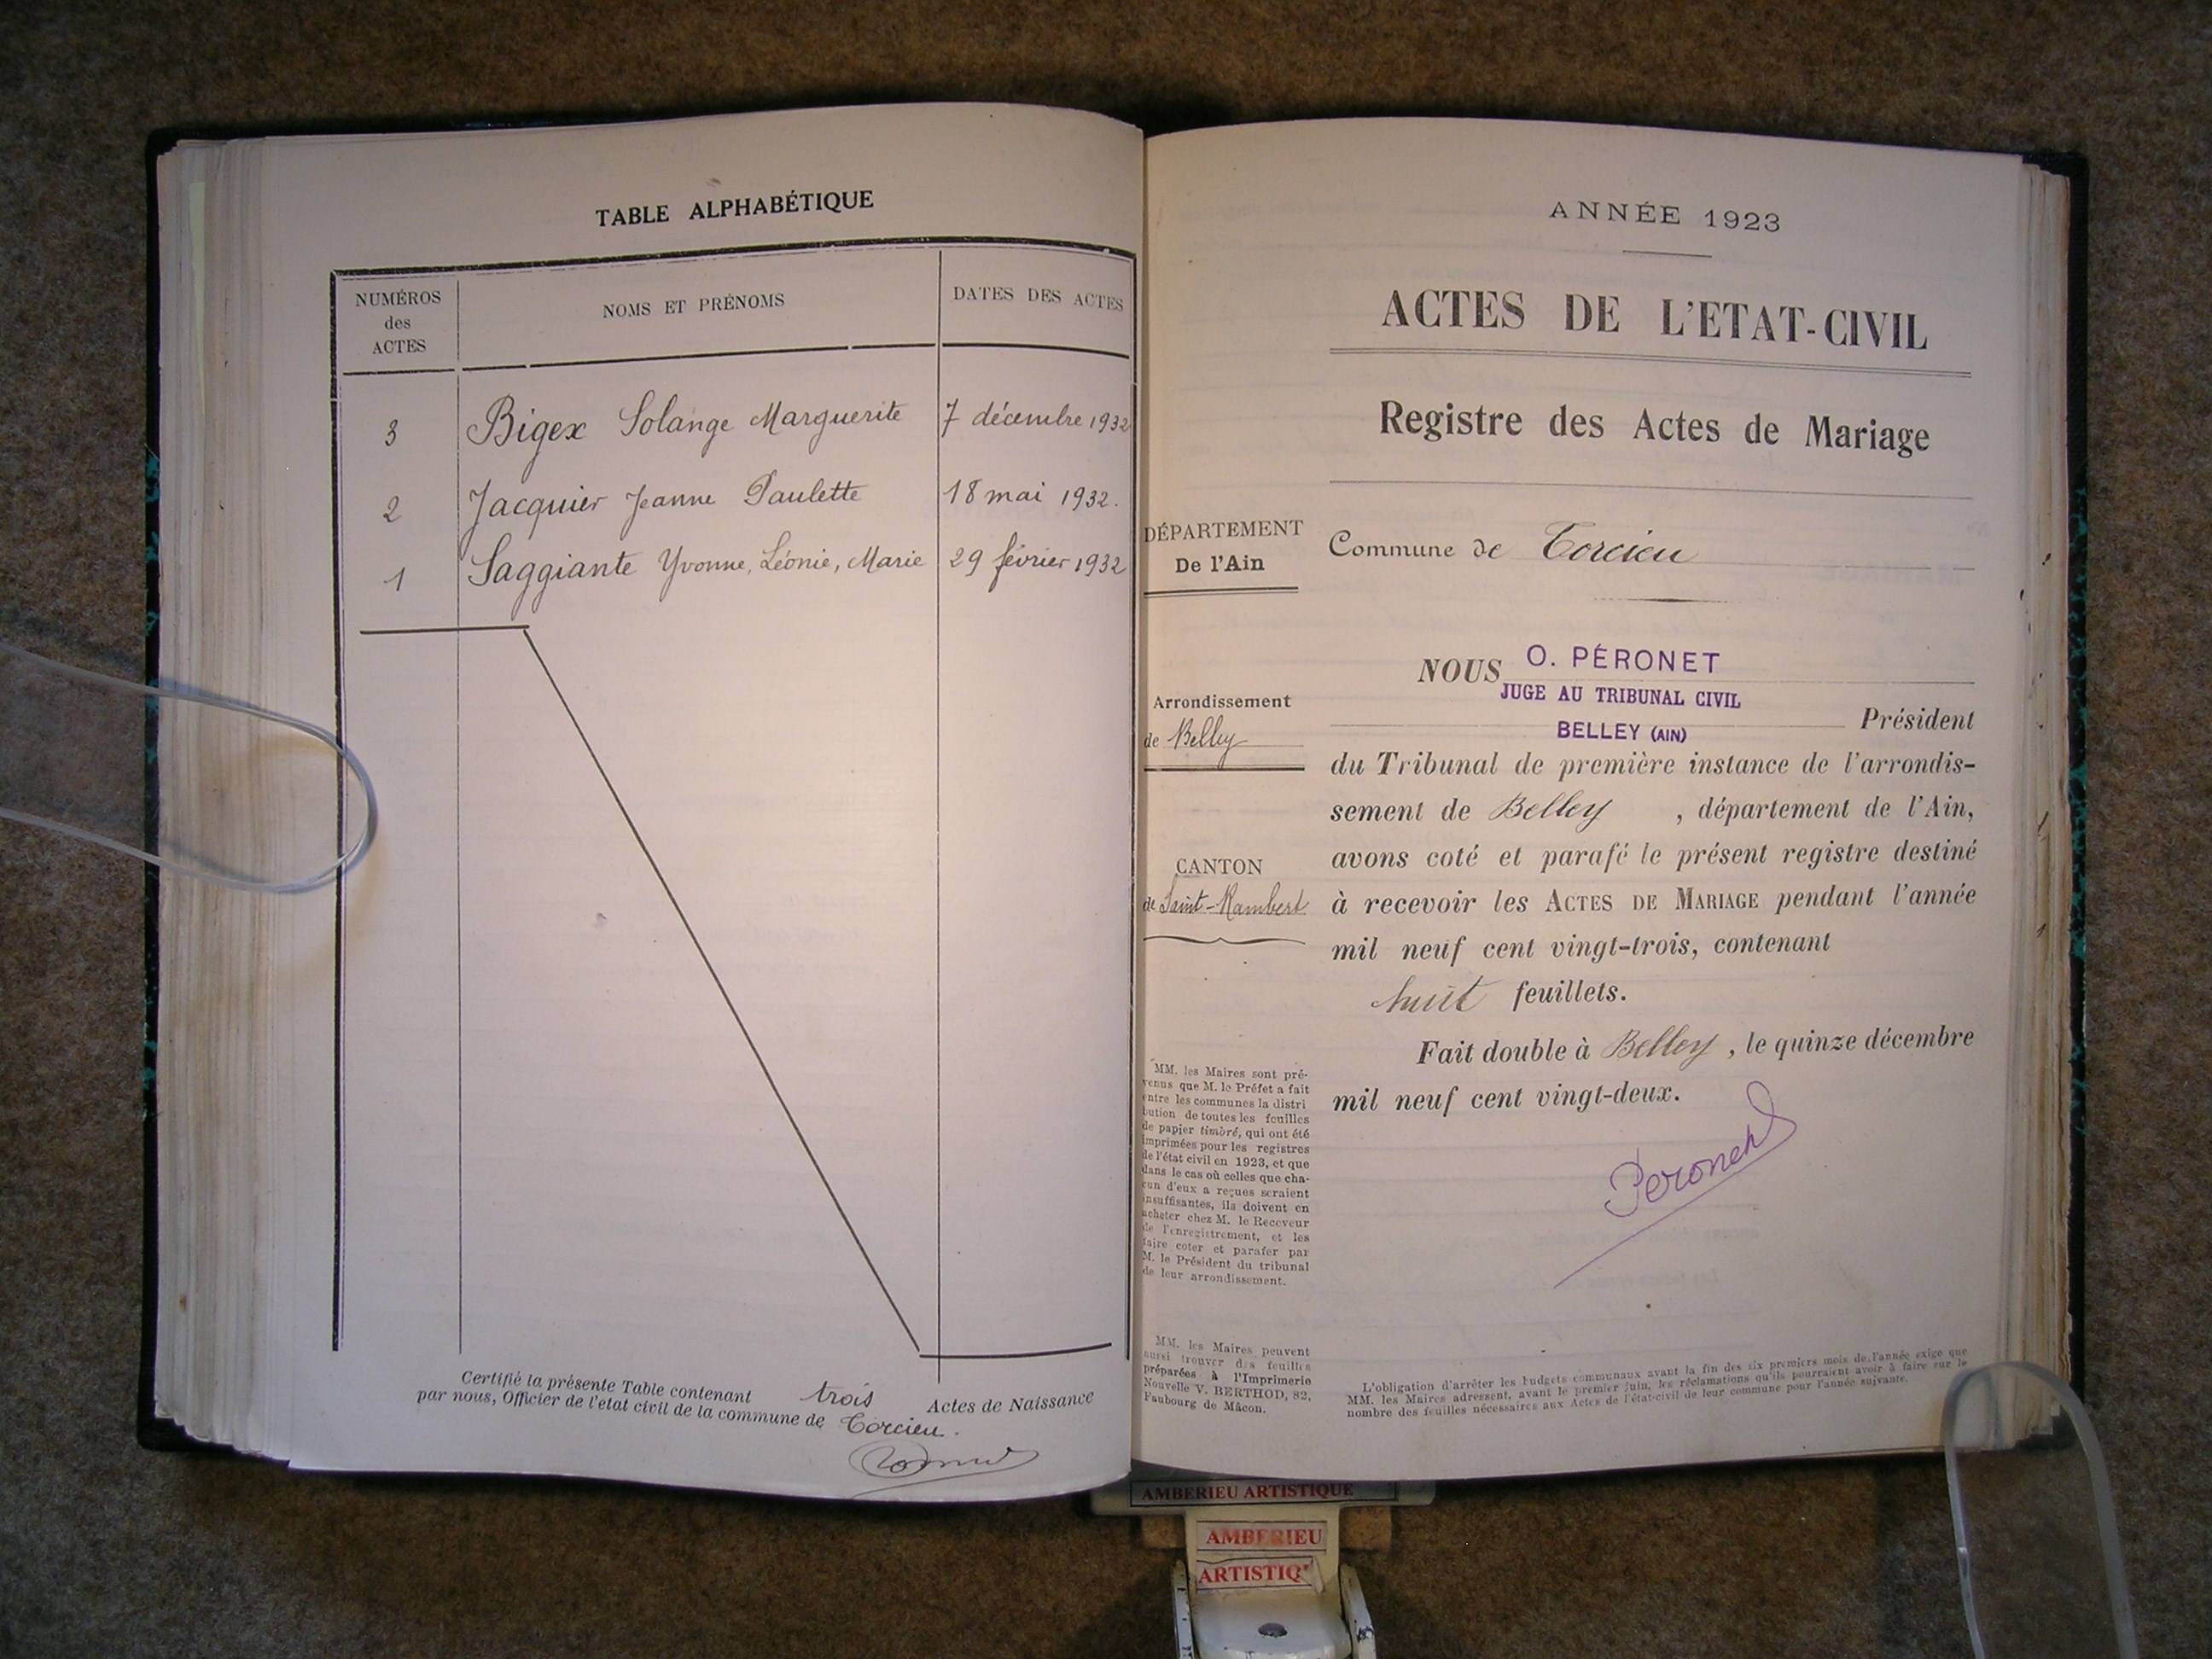 TABLE ALPHABÉTIQUE
NUMÉROS
des
ACTES
NOMS ET PRÉNOMS
DATES DES ACTES
3 Bigex Solange Marguerite 7 décembre 1932
2 Jacquier Jeanne Paulette 18 mai 1932.
1 Saggiante Yvonne, Léonie, Marie 29 février 1932
Certifié la présente Table contenant trois Actes de Naissance
par nous, Officier de l'etat civil de la commune de Torcieu.
ANNÉE 1923
ACTES DE L'ETAT-CIVIL
Registre des Actes de Mariage
DÉPARTEMENT
De l'Ain
Arrondissement
de Belley
CANTON
de Saint-Rambert
MM. les Maires sont pré-
venus que M. le Préfet a fait
entre les communes la distri
bution de toutes les feuilles
de papier timbré, qui ont été
imprimées pour les registres
de l'état civil en 1923, et que
dans le cas où celles que cha-
cun d'eux a reçues seraient
insuffisantes, ils doivent en
acheter chez M. le Receveur
de l'enregistrement, et les
faire coter et parafer par
M. le Président du tribunal
de leur arrondissement.
MM. les Maires peuvent
aussi trouver des feuilles
préparées à l'Imprimerie
Nouvelle V. BERTHOD, 82,
Faubourg de Mâcon.
Commune de Torcieu
NOUS O. PÉRONET
JUGE AU TRIBUNAL CIVIL
BELLEY (AIN) Président
du Tribunal de première instance de l'arrondis-
sement de Belley , département de l'Ain,
avons coté et parafé le présent registre destiné
à recevoir les ACTES DE MARIAGE pendant l'année
mil neuf cent vingt-trois, contenant
huit feuillets.
Fait double à Belley , le quinze décembre
mil neuf cent vingt-deux.
Péronet
L'obligation d'arrêter les budgets communaux avant la fin des six premiers mois de l'année exige que
MM. les Maires adressent, avant le premier juin, les réclamations qu'ils pourraient avoir à faire sur le
nombre des feuilles nécessaires aux Actes de l'état-civil de leur commune pour l'année suivante.
AMBERIEU ARTISTIQUE
AMBERIEU
ARTISTIQ